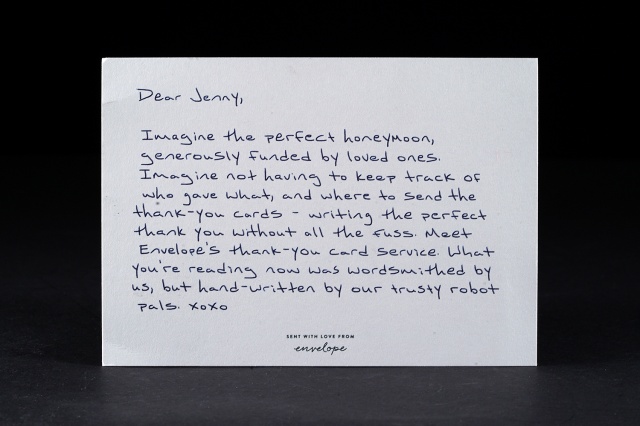 Dear Jenny,
Imagine the perfect honeymoon,
generously funded by loved ones.
Imagine not having to keep track of
who gave what, and where to send the
thank-you cards - writing the perfect
thank you without all the fuss. Meet
Envelope's thank-you card service. What
you're reading now was wordsmithed by
us, but hand-written by our trusty robot
pals. xoxo
SENT WITH LOVE FROM
envelope